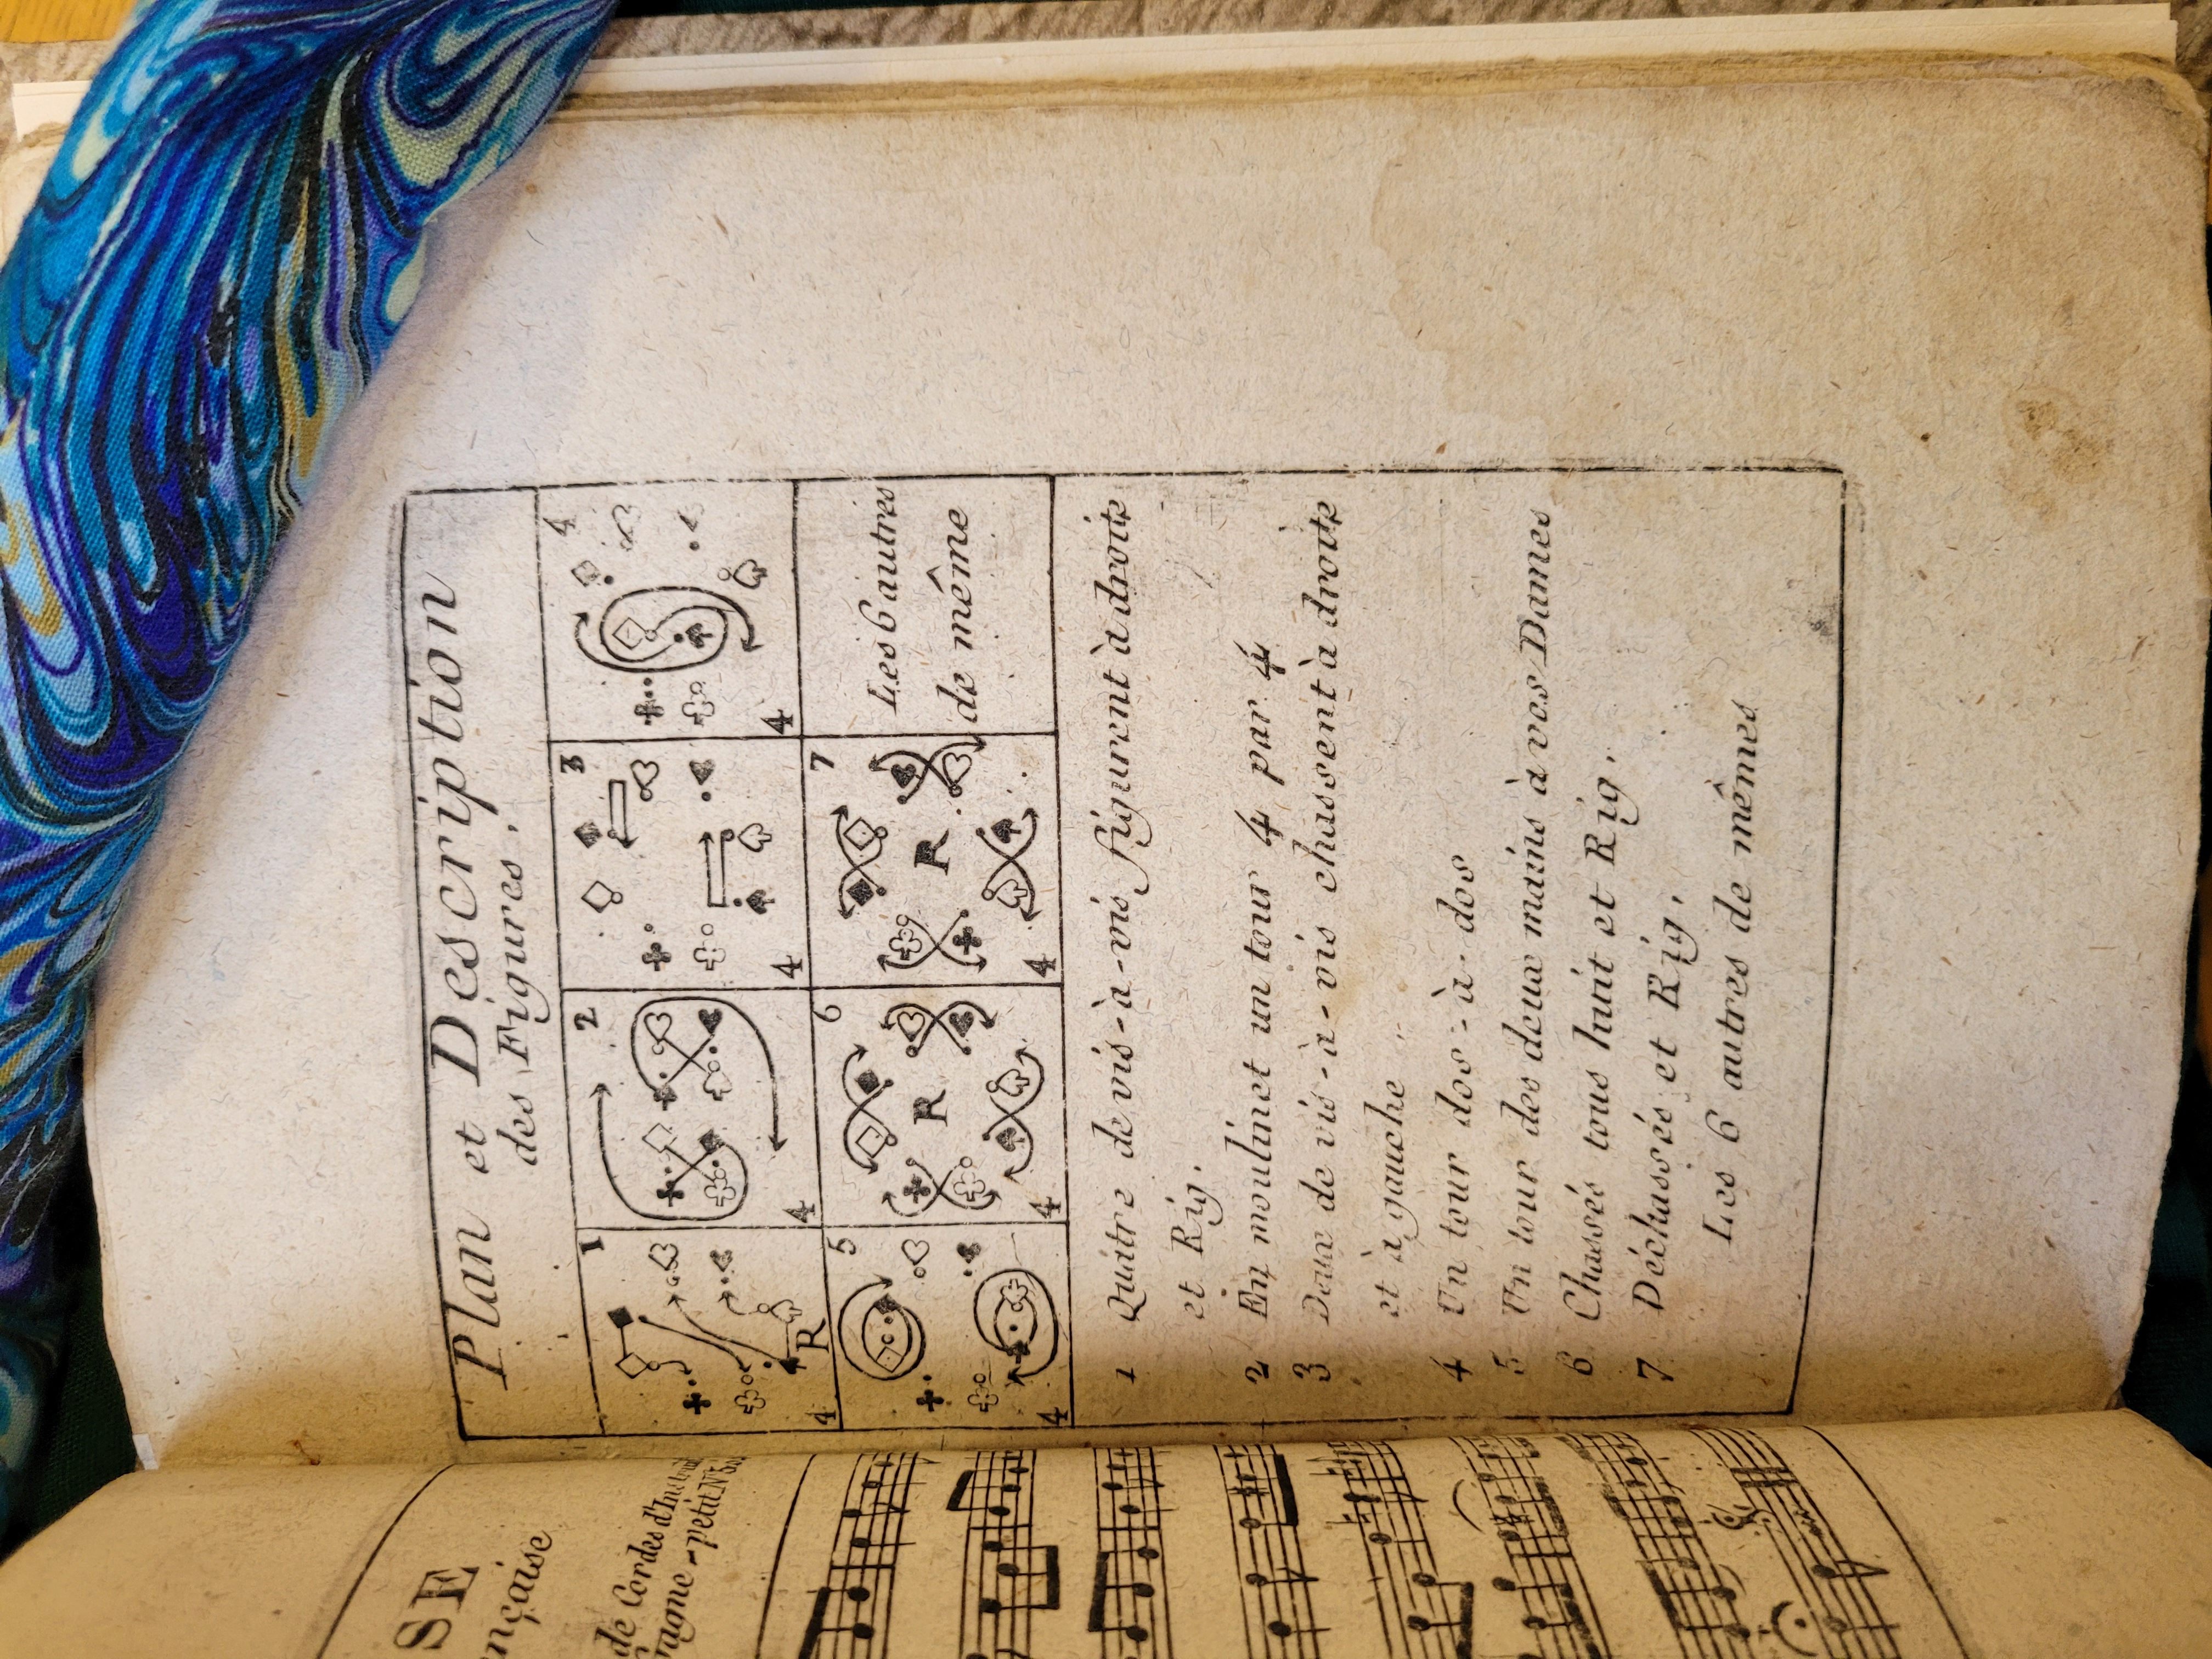 Plan et Description
des Figures.
1
4
R
2
4
3
4
4
4
5
4
6
R
4
7
R
4
Les 6 autres
de même
1 Quatre de vis-à-vis figurent à droite
et Rig.
2 En moulinet un tour 4 par 4
3 Deux de vis-à-vis chassent à droite
et à gauche
4 Un tour dos-à-dos
5 Un tour des deux mains à vos Dames
6 Chassés tous huit et Rig.
7 Déchassés et Rig.
Les 6 autres de mêmes
SE
nçaise
de Cordes d'
petit N